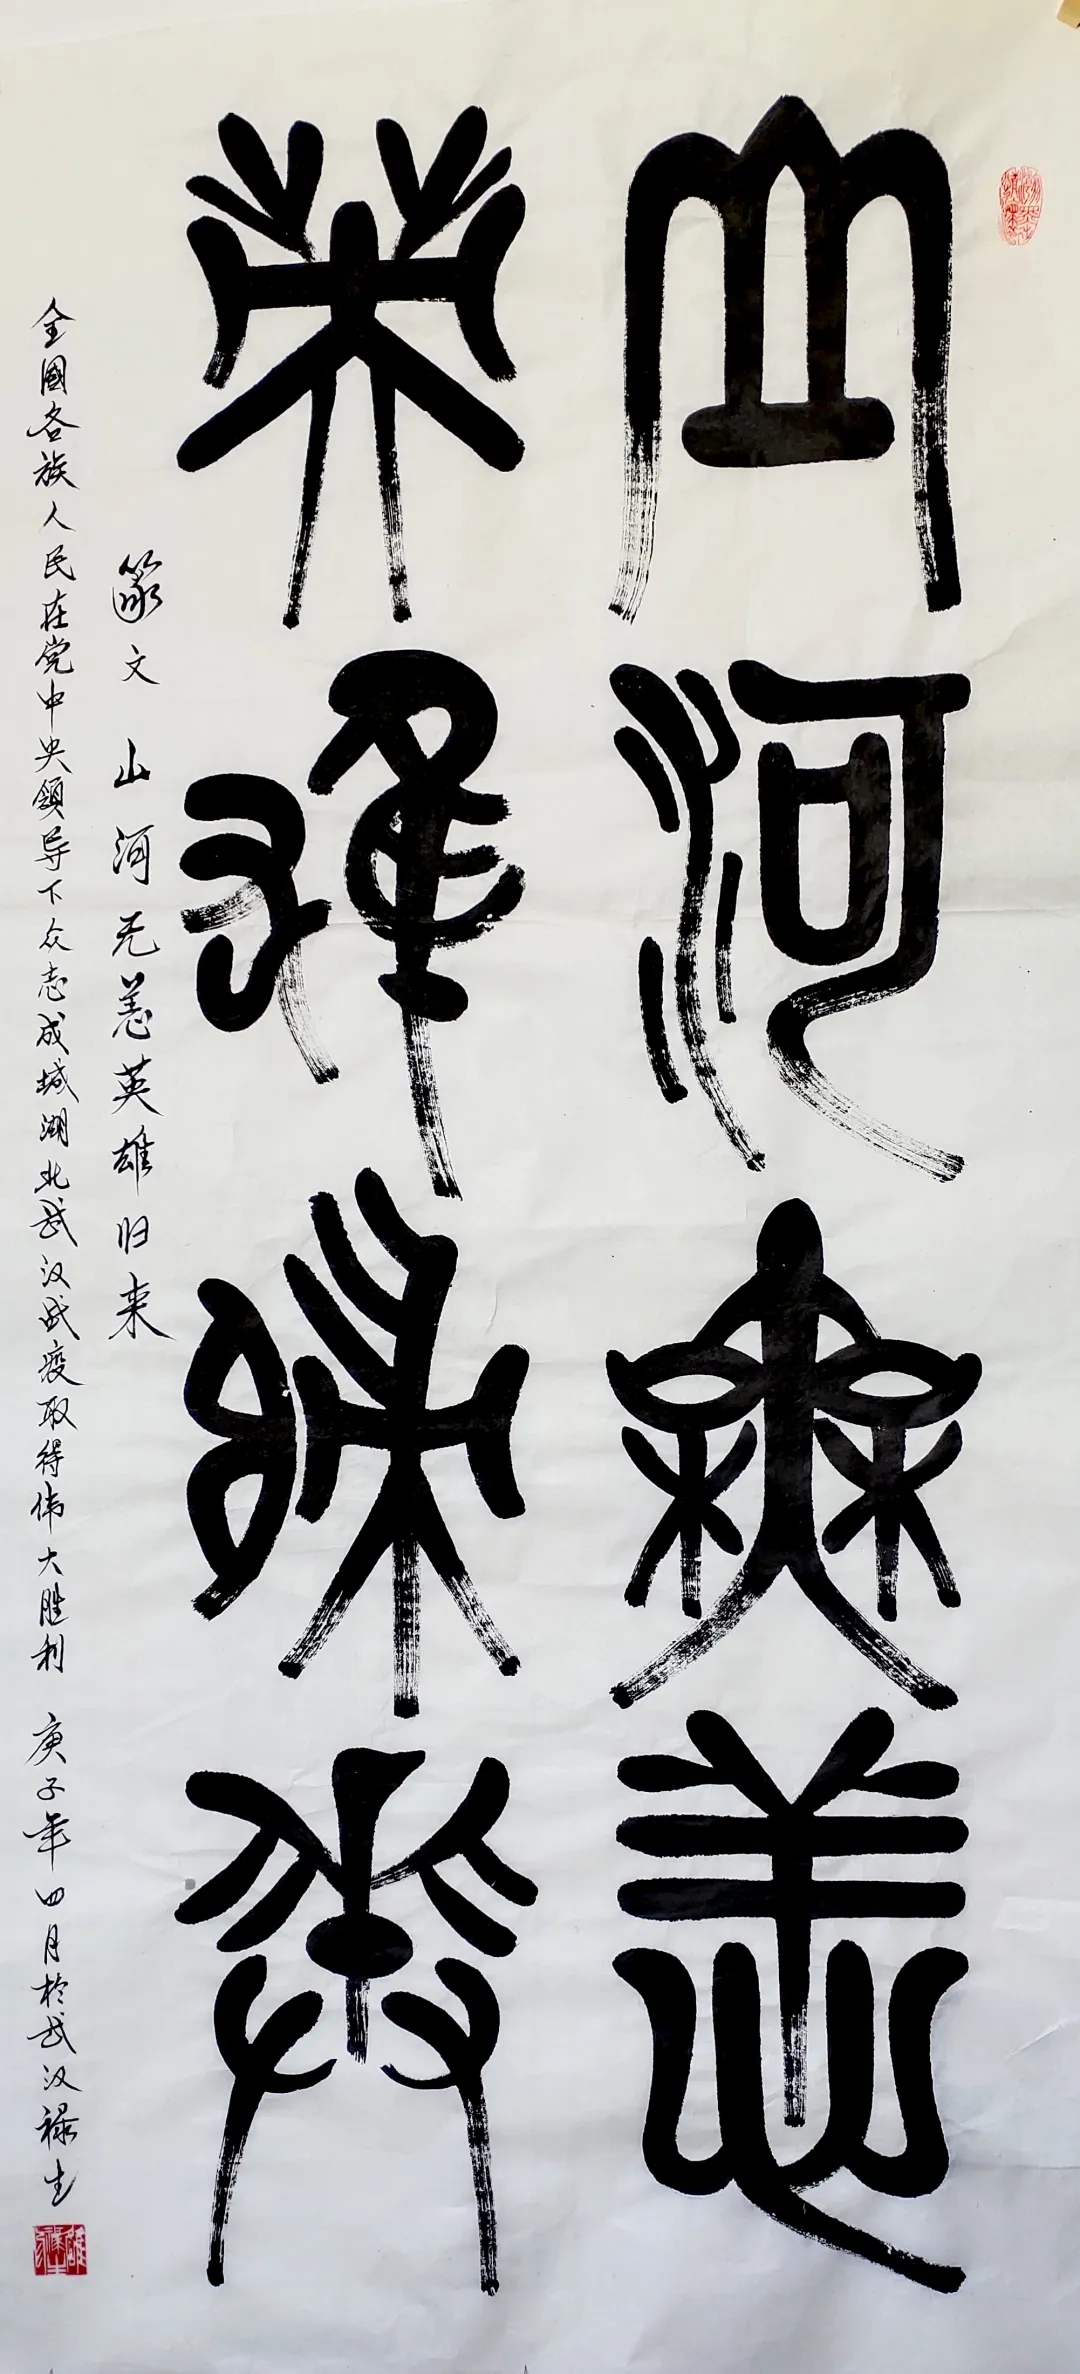 山河無恙
英雄歸來
篆文 山河无恙英雄归来
全國各族人民在党中央領导下众志成城湖北武汉战疫取得伟大胜利 庚子年四月於武汉禄生